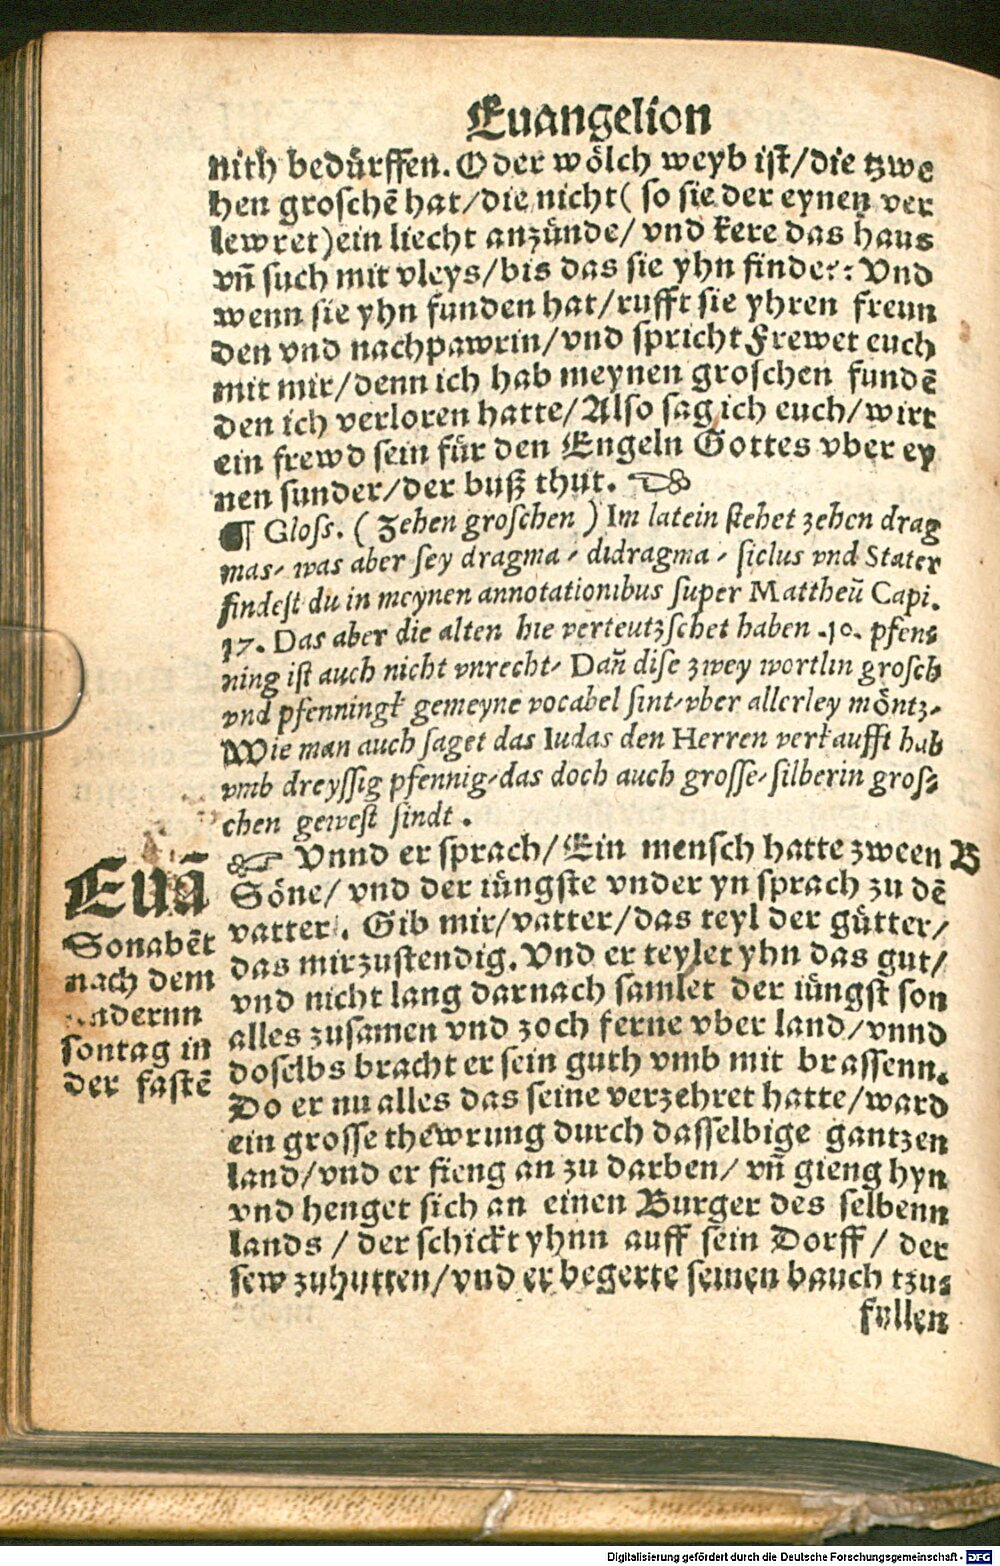 Euangelion
nith bedürffen. Oder wölch weyb ist/die tzwe
hen groschē hat/die nicht( so sie der eynen ver
lewret)ein liecht anzünde/ vnd kere das haus
vñ such mit vleys/bis das sie yhn finde:: Vnd
wenn sie yhn funden hat/rufft sie yhren freun
den vnd nachpawrin/vnd spricht Frewet euch
mit mir/denn ich hab meynen groschen fundē
den ich verloren hatte/Also sag ich euch/wirt
ein frewd sein für den Engeln Gottes vber ey
nen sunder/der buß thut.
¶ Gloss. ( Zehen groschen ) Im latein stehet zehen drag
mas, was aber sey dragma , didragma , siclus vnd Stater
findest du in meynen annotationibus super Mattheū Capi.
17. Das aber die alten hie verteutzschet haben .10. pfen⸗
ning ist auch nicht vnrecht, Dañ dise zwey wortlin grosch
vnd pfenningk gemeyne vocabel sint,vber allerley möntz,
Wie man auch saget das Iudas den Herren verkaufft hab
vmb dreyssig pfennig,das doch auch grosse,silberin gros⸗
chen gewest sindt .
☞ Vnnd er sprach/Ein mensch hatte zween B
Söne/ vnd der iüngste vnder yn sprach zu dē
vatter. Gib mir/vatter/das teyl der gütter/
das mir zustendig. Vnd er teylet yhn das gut/
vnd nicht lang darnach samlet der iüngst son
alles zusamen vnd zoch ferne vber land/vnnd
doselbs bracht er sein guth vmb mit brassenn.
Do er nu alles das seine verzehret hatte/ward
ein grosse thewrung durch dasselbige gantzen
land/vnd er fieng an zu darben/ vñ gieng hyn
vnd henget sich an einen Burger des selbenn
lands / der schickt yhnn auff sein Dorff/ der
sew zuhutten/vnd er begerte seinen bauch tzu⸗
fullen
Euā
Sonabēt
nach dem
andernn
sontag in
der fastē
Digitalisierung gefördert durch die Deutsche Forschungsgemeinschaft - DFG